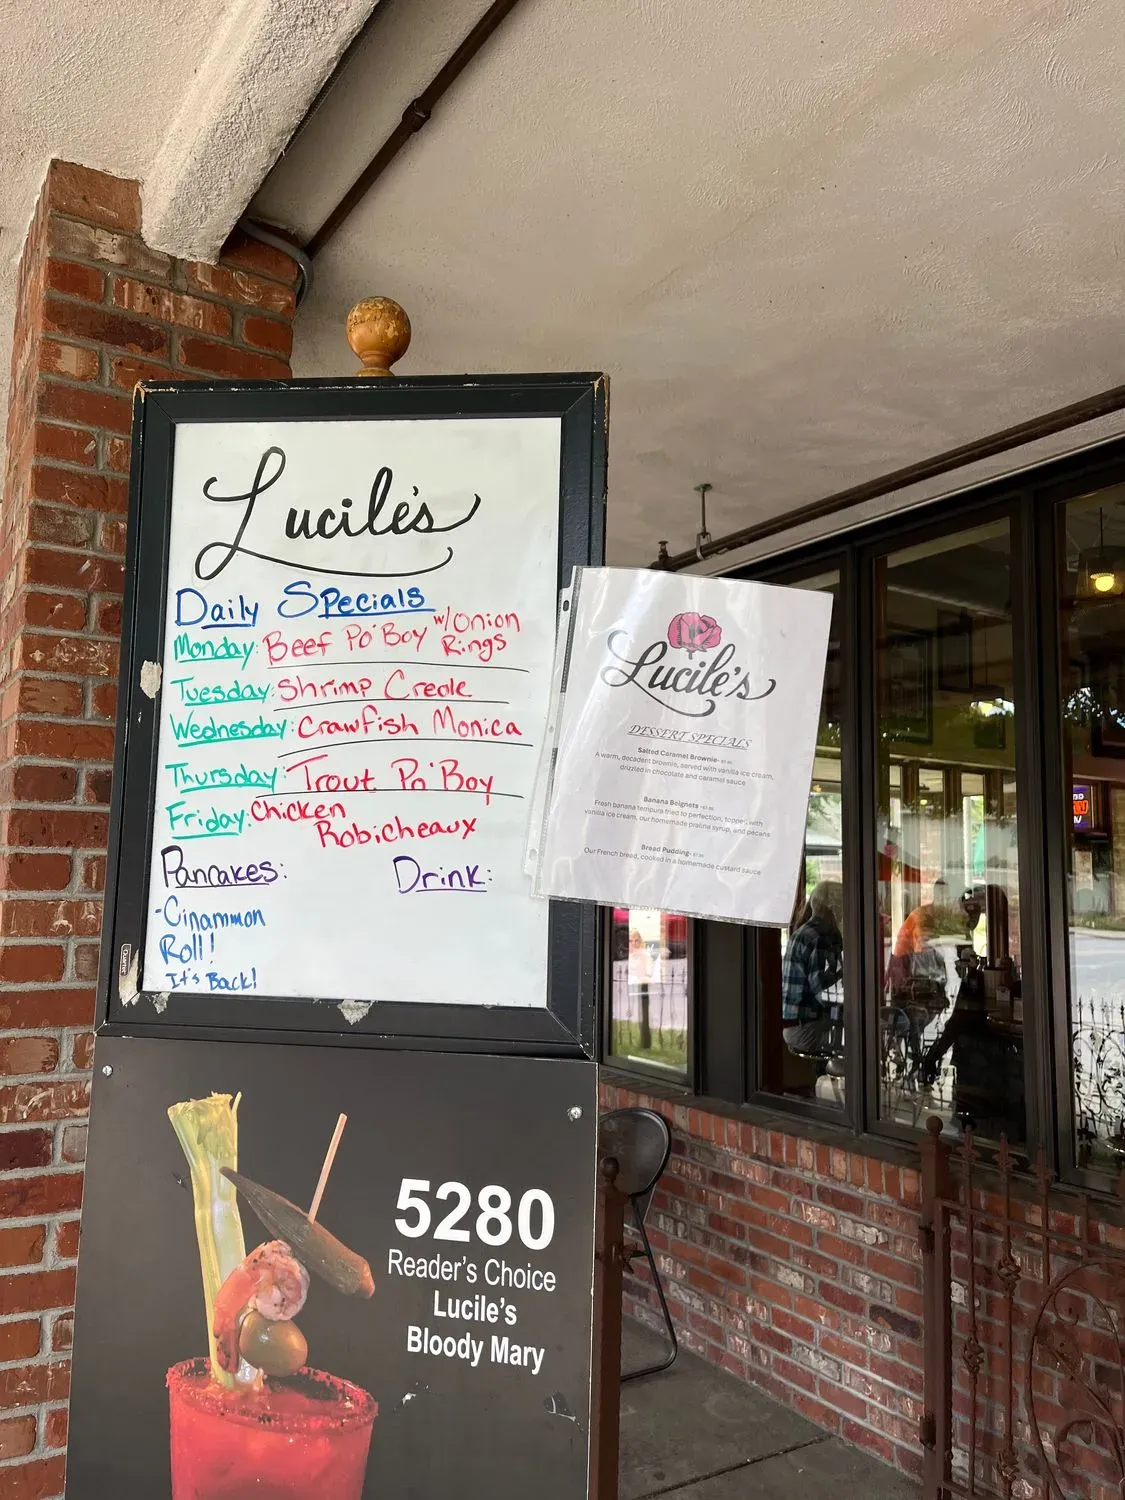 Lucile's
Daily Specials
Monday: Beef Po'Boy w/Onion Rings
Tuesday: Shrimp Creole
Wednesday: Crawfish Monica
Thursday: Trout Po'Boy
Friday: Chicken
Robicheaux
Pancakes:
-Cinammon
Roll!
It's Back!
Drink:
Lucile's
DESSERT SPECIALS
Salted Caramel Brownie-
A warm, decadent brownie, served with vanilla ice cream,
drizzled in chocolate and caramel sauce
Banana Beignets
Fresh banana tempura fried to perfection, topped with
vanilla ice cream, our homemade praline syrup, and pecans
Bread Pudding-
Our French bread, cooked in a homemade custard sauce
5280
Reader's Choice
Lucile's
Bloody Mary